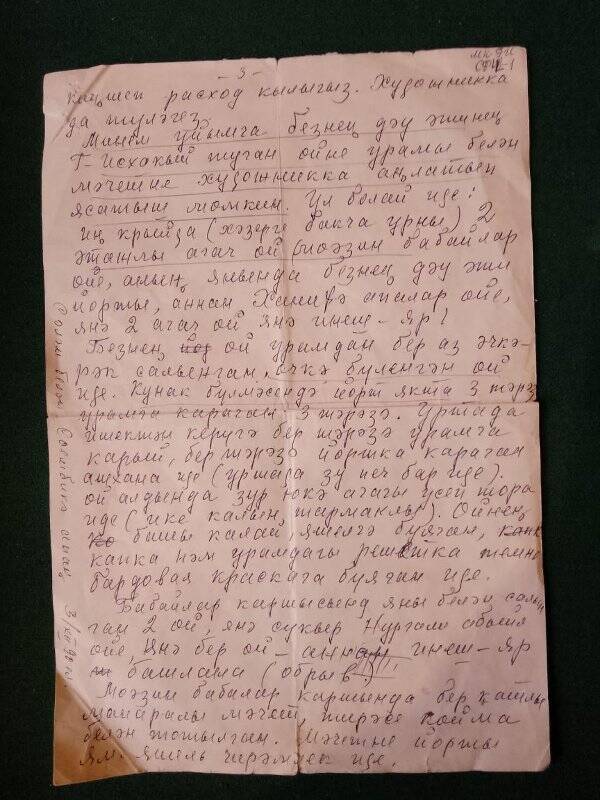 - 3 -
киңшеп расход кылыгыз. Художникка
да түләгез
Минем уйымга безнең дәү әтинең
Г-Исхакый туган ойне урамы белән
мәчетне художникка аңлатып
ясатып мөмкин. Ул болай иде:
иң крыйда (хәзерге бакча урны) 2
этажлы агач ой (моәзин бабайлар
ойе, аның янында безнең дәү әти
йорты, аннан Ханифә апалар ойе,
янә 2 агач ой янә инеш - яр!
Безнең ой урамдан бер аз эчкә-
рәк салынган, очкә бүленгән ой
иде. Кунак бүлмәсендә йорт якта 3 тәрәзә
урамга караган 3 тәрәзә. Уртада
ишектән керүгә бер тәрәзә урамга
карый, бер тәрәзә йортка караган
ашхана иде (уртада зу печ бар иде).
ой алдында зур юкә агачы үсеп тора
иде (ике калын тармаклы). Ойнең
башы калай, яшелчә буяган,
капка һәм урамдагы решетка темно
бардовая краскага буяган иде.
Бабайлар каршысында яңы белән салын
ган 2 ой, янә сукыр Нургали абыйя
ойе, янә бер ой - аннан инеш - яр
башлана (обрыв)
Моәзин бабалар каршында бер катлы
манаралы мәчет, тирәсе койма
белән тотылган. Мәчетне йорты
ям. яшель чирәмлек иде.
Сәлам белән Сөембикә апаң